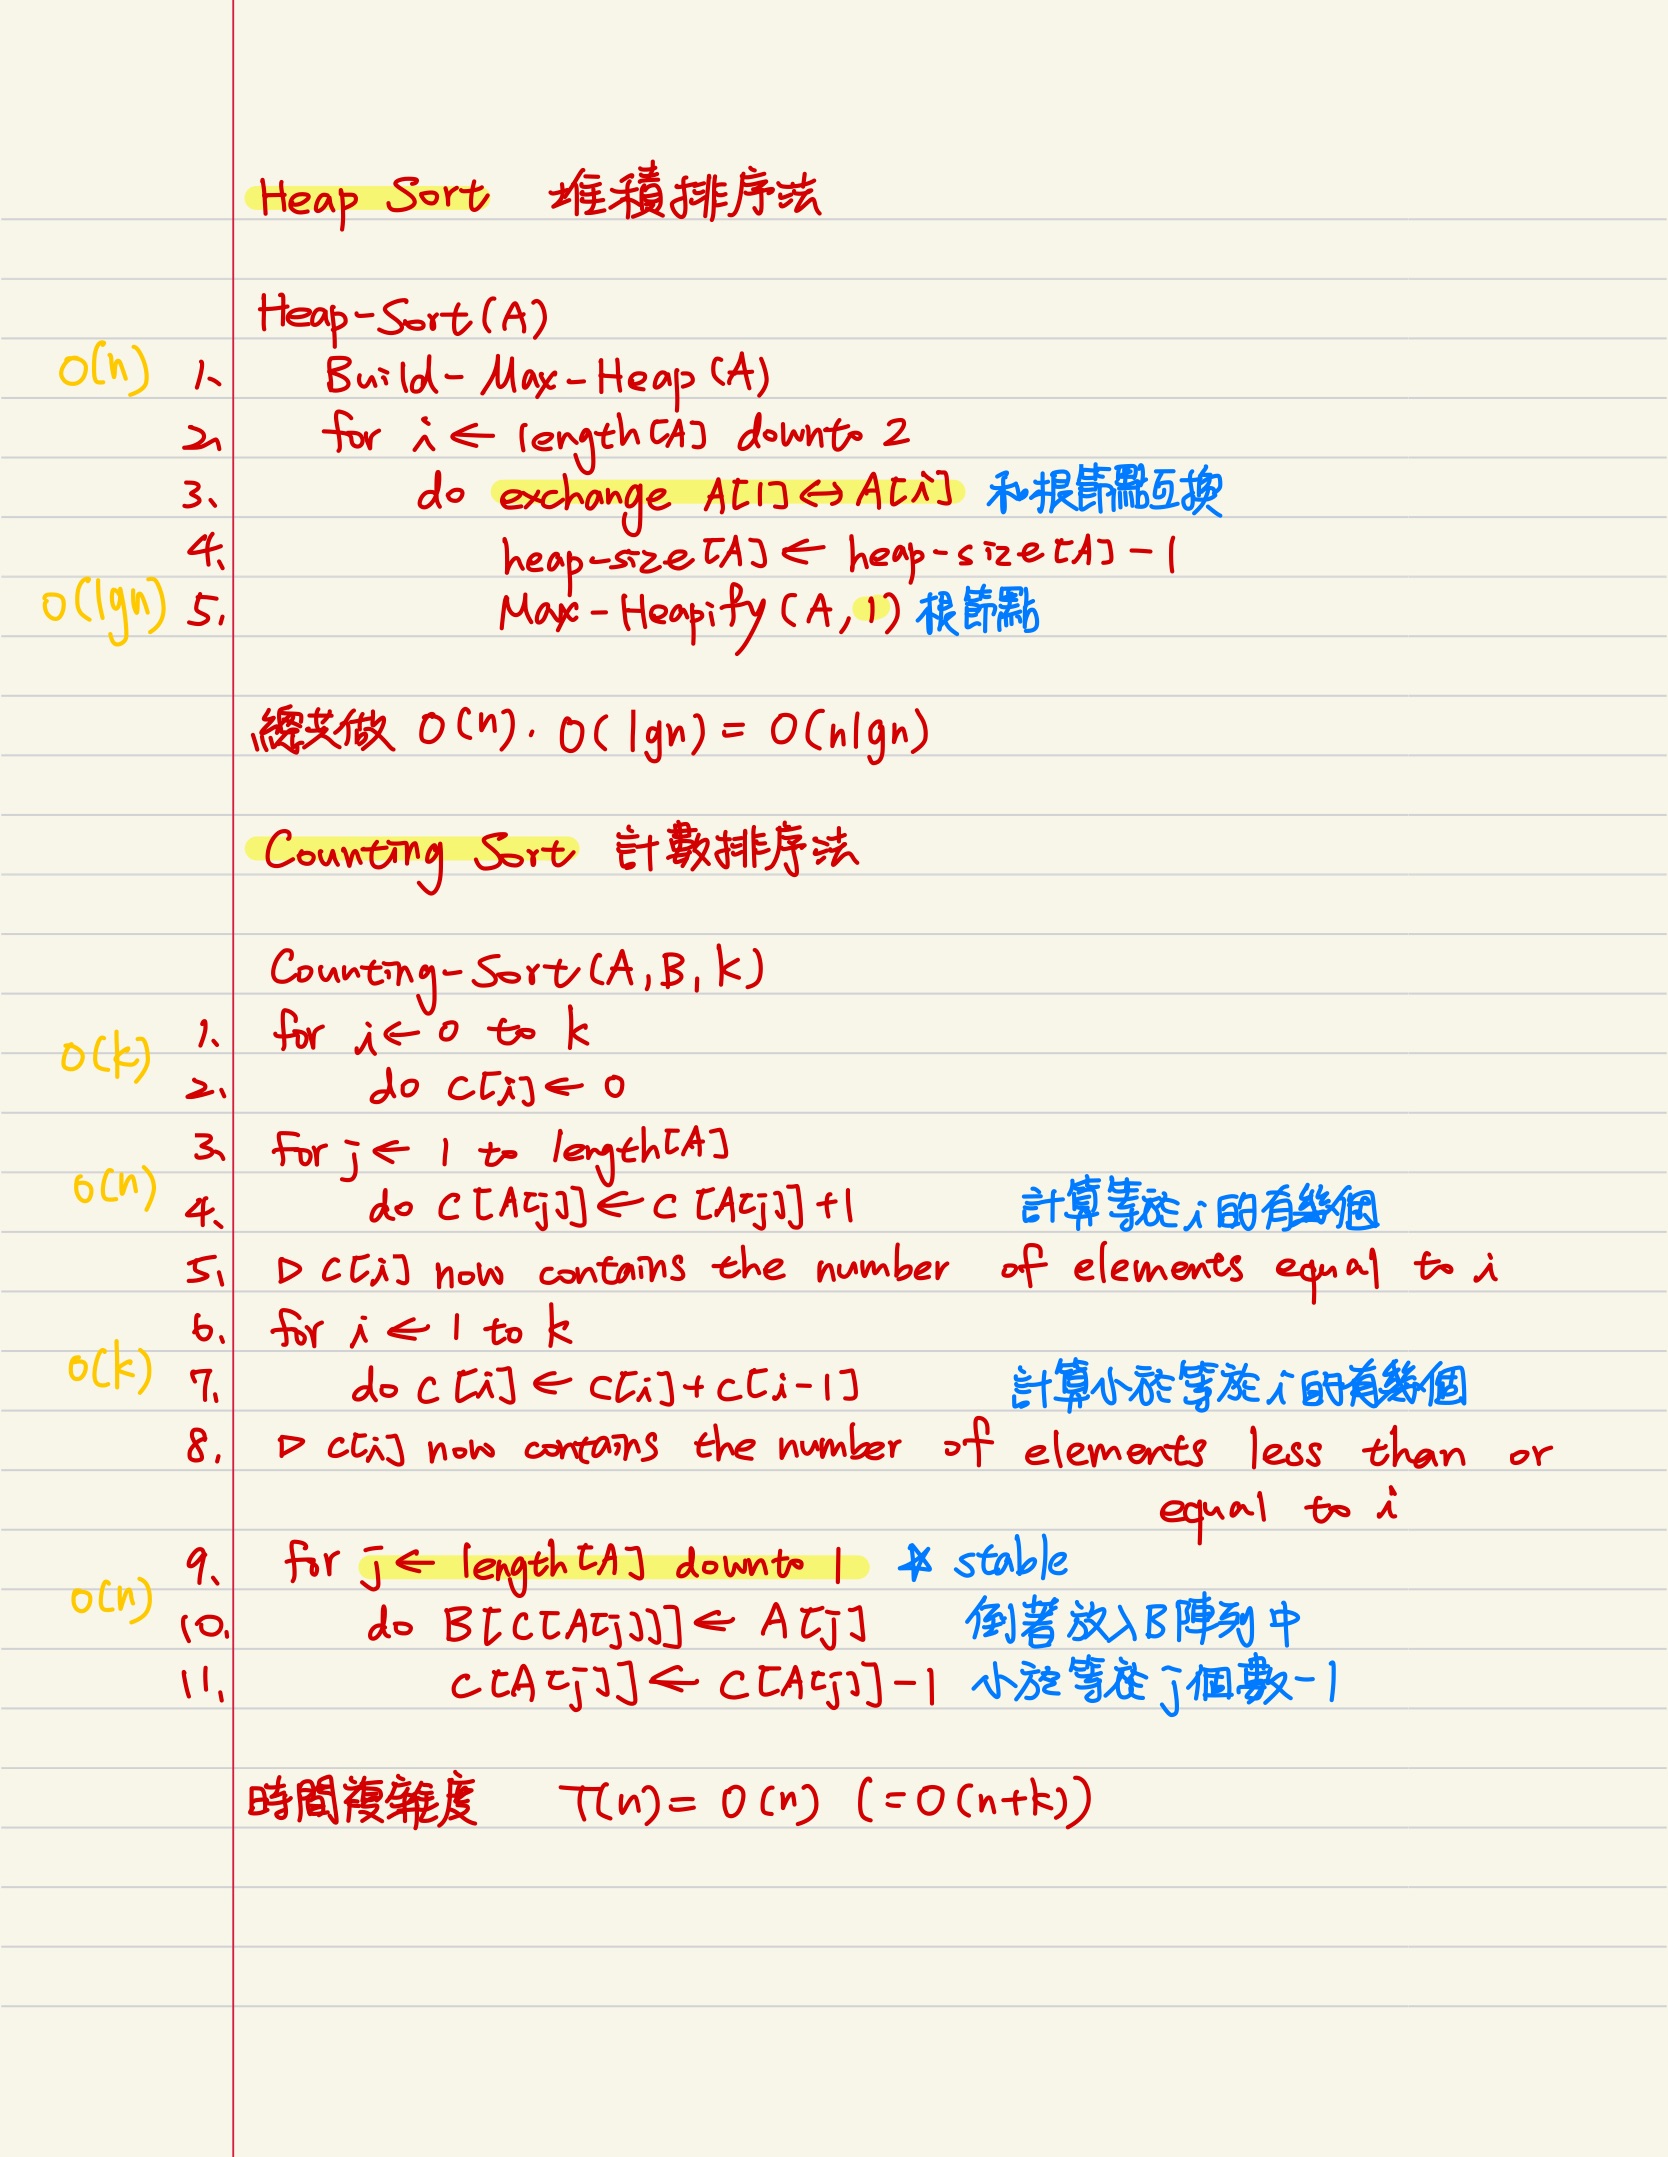 Heap Sort 堆積排序法
Heap-Sort(A)
O(n) 1、 Build-Max-Heap(A)
2、 for i ← length[A] downto 2
3、 do exchange A[1] ↔ A[i] 和根節點互換
4、 heap-size[A] ← heap-size[A] - 1
O(lgn) 5、 Max-Heapify(A, 1) 根節點
總共做 O(n)· O(lgn) = O(nlgn)
Counting Sort 計數排序法
Counting-Sort(A, B, k)
O(k) 1、 for i ← 0 to k
2、 do C[i] ← 0
3、 for j ← 1 to length[A]
O(n) 4、 do C[A[j]] ← C[A[j]] + 1 計算等於 i 的有幾個
5、 ▷ C[i] now contains the number of elements equal to i
6、 for i ← 1 to k
O(k) 7、 do C[i] ← C[i] + C[i-1] 計算小於等於 i 的有幾個
8、 ▷ C[i] now contains the number of elements less than or
equal to i
9、 for j ← length[A] downto 1 ☆ stable
O(n) 10、 do B[C[A[j]]] ← A[j] 倒著放入B陣列中
11、 C[A[j]] ← C[A[j]] - 1 小於等於 j 個數 - 1
時間複雜度 T(n) = O(n) (= O(n+k))